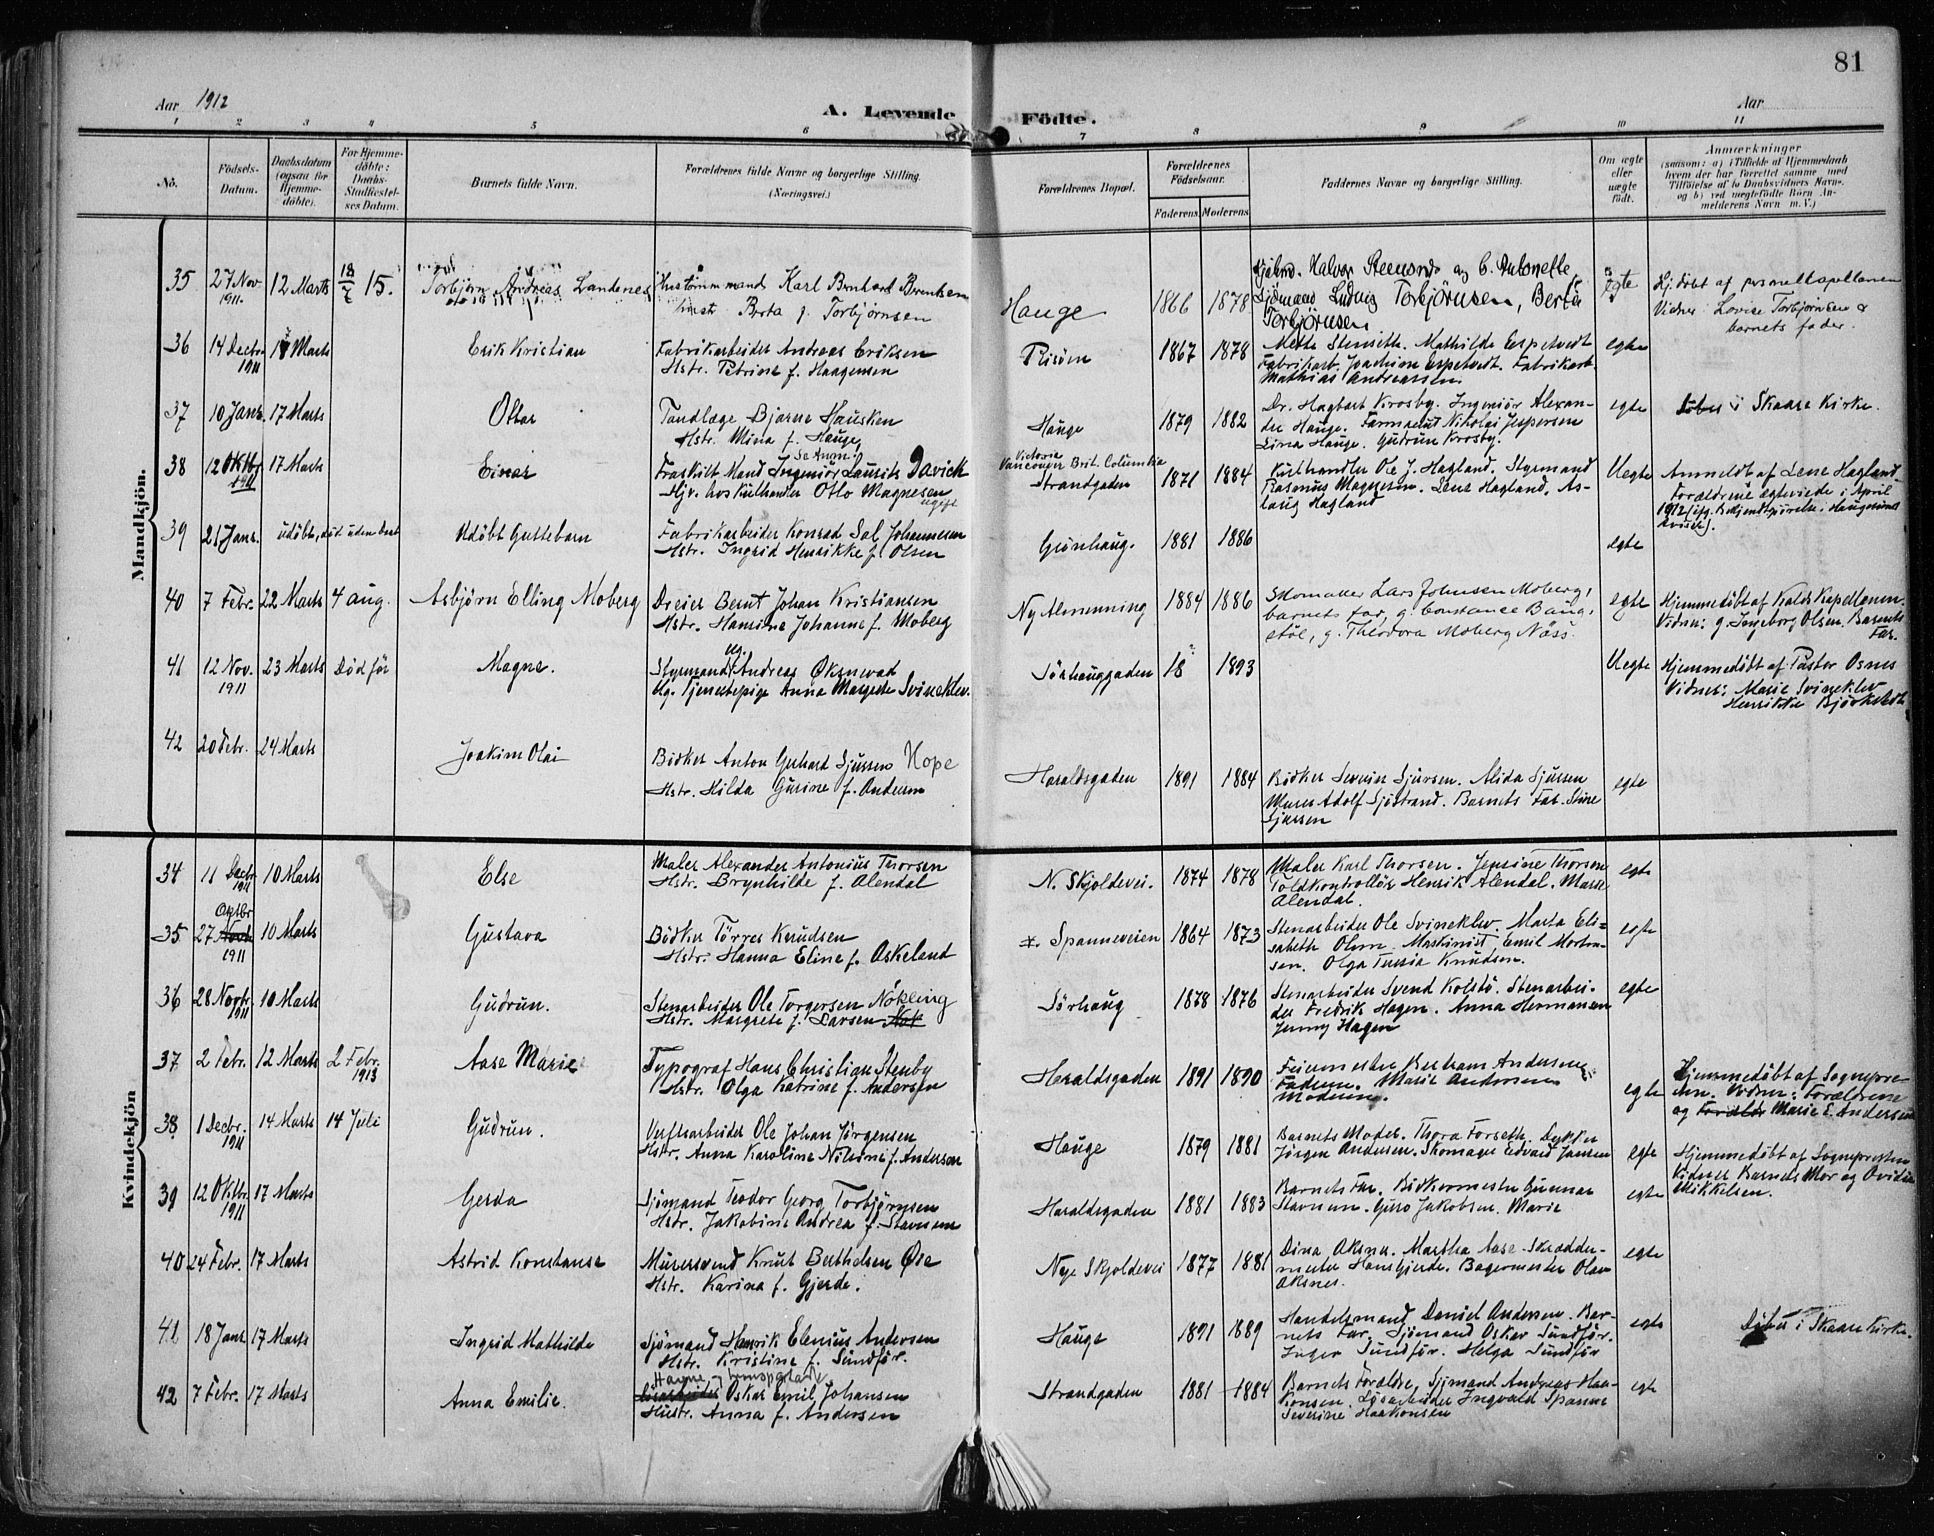 81
Aar 1912
A. Levende Födte.
Aar
1 2 3 4 5 6 7 8 9 10 11
No.
Födsels-Datum.
Daabsdatum (ogsaa for Hjemme-döbte).
For Hjemme-döbte: Daabs-Stadfæstel-ses Datum.
Barnets fulde Navn.
Forældrenes fulde Navne og borgerlige Stilling. (Næringsvei.)
Forældrenes Bopæl.
Forældrenes Födselsaar.
Faderens Moderens
Faddernes Navne og borgerlige Stilling.
Om ægte eller uægte født.
Anmærkninger (saasom: a) i Tilfælde af Hjemmedaab hvem der har forrettet samme med Tilföielse af to Daabsvidners Navne, og b) ved uægtefödte Börn An-melderens Navn m. V.)
Mandkjön.
35 27 Nov. 1911. 12 Marts 18/7 15. Torbjørn Andreas Landenes
Karl Bernhard
Berta f. Torbjørnsen
Hauge 1866 1878
Halvor og C. Antonette,
Sjömand Ludvig Torbjørnsen, Berta
Torbjørnsen
egte
Hj.döbt af personelkapellanen
Vidner: Lovise Torbjørnsen &
barnets fader.
36 14 Decbr. 1911 Marts Erik Kristian
Fabrikarbeider Andreas Eriksen
Hstr. Petrine f. Haagensen
Risöen 1867 1878
Mathilde Espetvedt
Fabrikarb. Joachim Espetvedt. Fabrikarb.
Mathias Andreassen.
egte
37 10 Janr. 17 Marts Ottar
Tandlæge Bjarne Hausken
Hstr. Mina f. Hauge,
Hauge 1879 1882
Dr. Hagbart Krosby. Ingeniör Alexan-
der Hauge. Farmaceut Nikolai Jespersen
Lina Hauge. Gudrun Krosby.
egte
Döbt i Skaare Kirke.
38 12 Oktbr 1911 17 Marts Einar
se Anm.
Fraskilt Mand Ingeniör Laurits Davick
Otto Magnesen
ugift
Victoria
Vancouver Brit. Columbia
Strandgaden 1871 1884
Kulhandler Ole J. Hagland. Styrmand
Rasmus Magnesen. Lene Hagland. As-
laug Hagland
Uegte
Anmeldt af Lene Hagland.
Forældrene egteviede i April
1912
39 21 Janr. udöbt, död uden daab Udöbt Guttebarn
Fabrikarbeider Konrad Sol Johannesen
Hstr. Ingrid Henrikke f. Olsen
Grönhaug. 1881 1886
egte
40 7 Febr. 22 Marts 4 aug. Asbjörn Elling Moberg
Dreier Bernt Johan Kristiansen
Hstr. Hansine Johanne f. Moberg
Ny Almenning 1884 1886
Skomaker Lars Johnsen Moberg,
barnets far, g. Constance Baug-
stöl, g. Theodora Moberg Næss.
egte
Hjemmedöbt af Kalds Kapellanen.
Vidner: g. Ingeborg Olsen. Barnets
Far.
41 12 Nov. 1911 23 Marts Död för Magne.
ug.
Styrmand Andreas Öksnevad
Ug. Tjenestepige Anna Margrete Svineklev.
Sörhauggaden 18 1893
Uegte
Hjemmedöbt af Pastor Osnes
Vidner: Marie Svineklev
Henrikke Bjørkelvedt
42 20 Febr. 24 Marts Joakim Olai
Bödker Anton Gerhard Sjursen Hope
Hstr. Hilda Gurine f. Andersen
Haraldsgaden 1891 1884
Bödker Severin Sjursen. Alida Sjursen
Murer Adolf Sjöstrand. Barnets Far. Stine
Sjursen
egte
Kvindekjön
34 11 Decbr 1911 10 Marts Else
Maler Alexander Antonius Thorsen
Hstr. Brynhilde f. Alendal
N. Skjoldevei. 1874 1878
Maler Karl Thorsen. Jensine Thorsen
Toldkontrollör Henrik Alendal. Marie
Alendal.
egte
35 27 Novb 1911 10 Marts Gustava
Bödker Törres Knudsen
Hstr. Hanna Eline f. Askeland
Spanneveien 1864 1873
Stenarbeider Ole Svineklev. Marta Eli-
sabeth Olsen. Maskinist Emil Morten-
sen. Olga Knudsen.
egte
36 28 Novbr. 1911 10 Marts Gudrun.
Stenarbeider Ole Torgersen Nökling
Hstr. Margrete f. Larsen
Sörhaug 1878 1876
Stenarbeider Svend Kolstö. Stenarbei-
der Fredrik Hagen. Anna Hermansen
Jenny Hagen
egte
37 2 Febr. 12 Marts 2 Febr. 1913 Aase Marie
Typograf Hans Christian Stenby
Hstr. Olga Katrine f. Andersen
Haraldsgaden 1891 1890
Feiermester Bertram Andersen
Faderen. Marie Andersen
Moderen.
egte
Hjemmedöbt af Sognepre-
sten. Vidner: Forældrene
og Marie E. Andersen
38. 1 Decbr. 1911 14 Marts 14 Juli Gudrun.
Verftsarbeider Ole Johan Jörgensen
Hstr. Anna Karoline Nilsine f. Andersen
Hauge 1879 1881
Barnets Moder. Thora Forseth. Dykker
Jörgen Andersen. Skomager Edvard Jansen
egte
Hjemmedöbt af Sognepresten
Vidner Barnets Mor og Ovidia
Mikkelsen.
39 12 Oktbr. 1911 17 Marts Gerda
Sjömand Teodor Georg Torbjørnsen
Hstr. Jakobine Andrea f. Stavnem
Haraldsgaden 1881 1883
Barnets Far. Bödkermester Gunnar
Stavnem. Guro Jakobsen. Marie
egte
40 24 Febr. 17 Marts Astrid Konstanse
Murersvend Knut Berthelsen Öie
Hstr. Karina f. Gjerde.
Nye Skjoldevei 1877 1881
Dina Aksnes. Martha Aase. Skrædder-
mester Hans Gjerde. Bagermester Olav
Aksnes.
egte
41 18 Janr 17 Marts Ingrid Mathilde
Sjömand Henrik Elenius Andersen
Hstr. Kristine f. Sundför.
Hauge 1891 1889
Handelsmand Daniel Andersen. Bar-
nets Far. Sjömand Oskar Sundför.
Inger Sundför. Helga Sundför
egte
Döbt i Skaare Kirke.
42 7 Febr. 17 Marts Anna Emilie.
Oskar Emil Johansen
Hustr. Anna f. Andersen
Strandgaden 1881 1884
Barnets Forældre, Sjömand Andreas Haa-
konsen. Lösarbeider Ingvald Spanne
Severine Haakonsen
egte